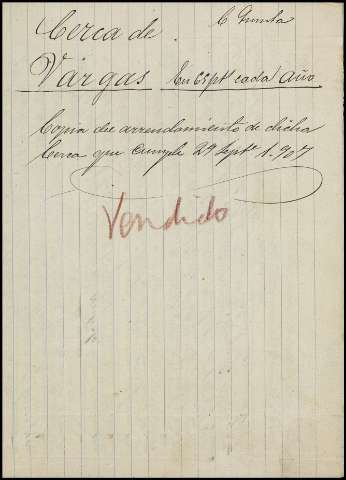 Cerca de
Vargas En 65 pts cada Año
Copia de arrendamiento de dicha
Cerca que Cumple 29 Septe 1.907
Vendido